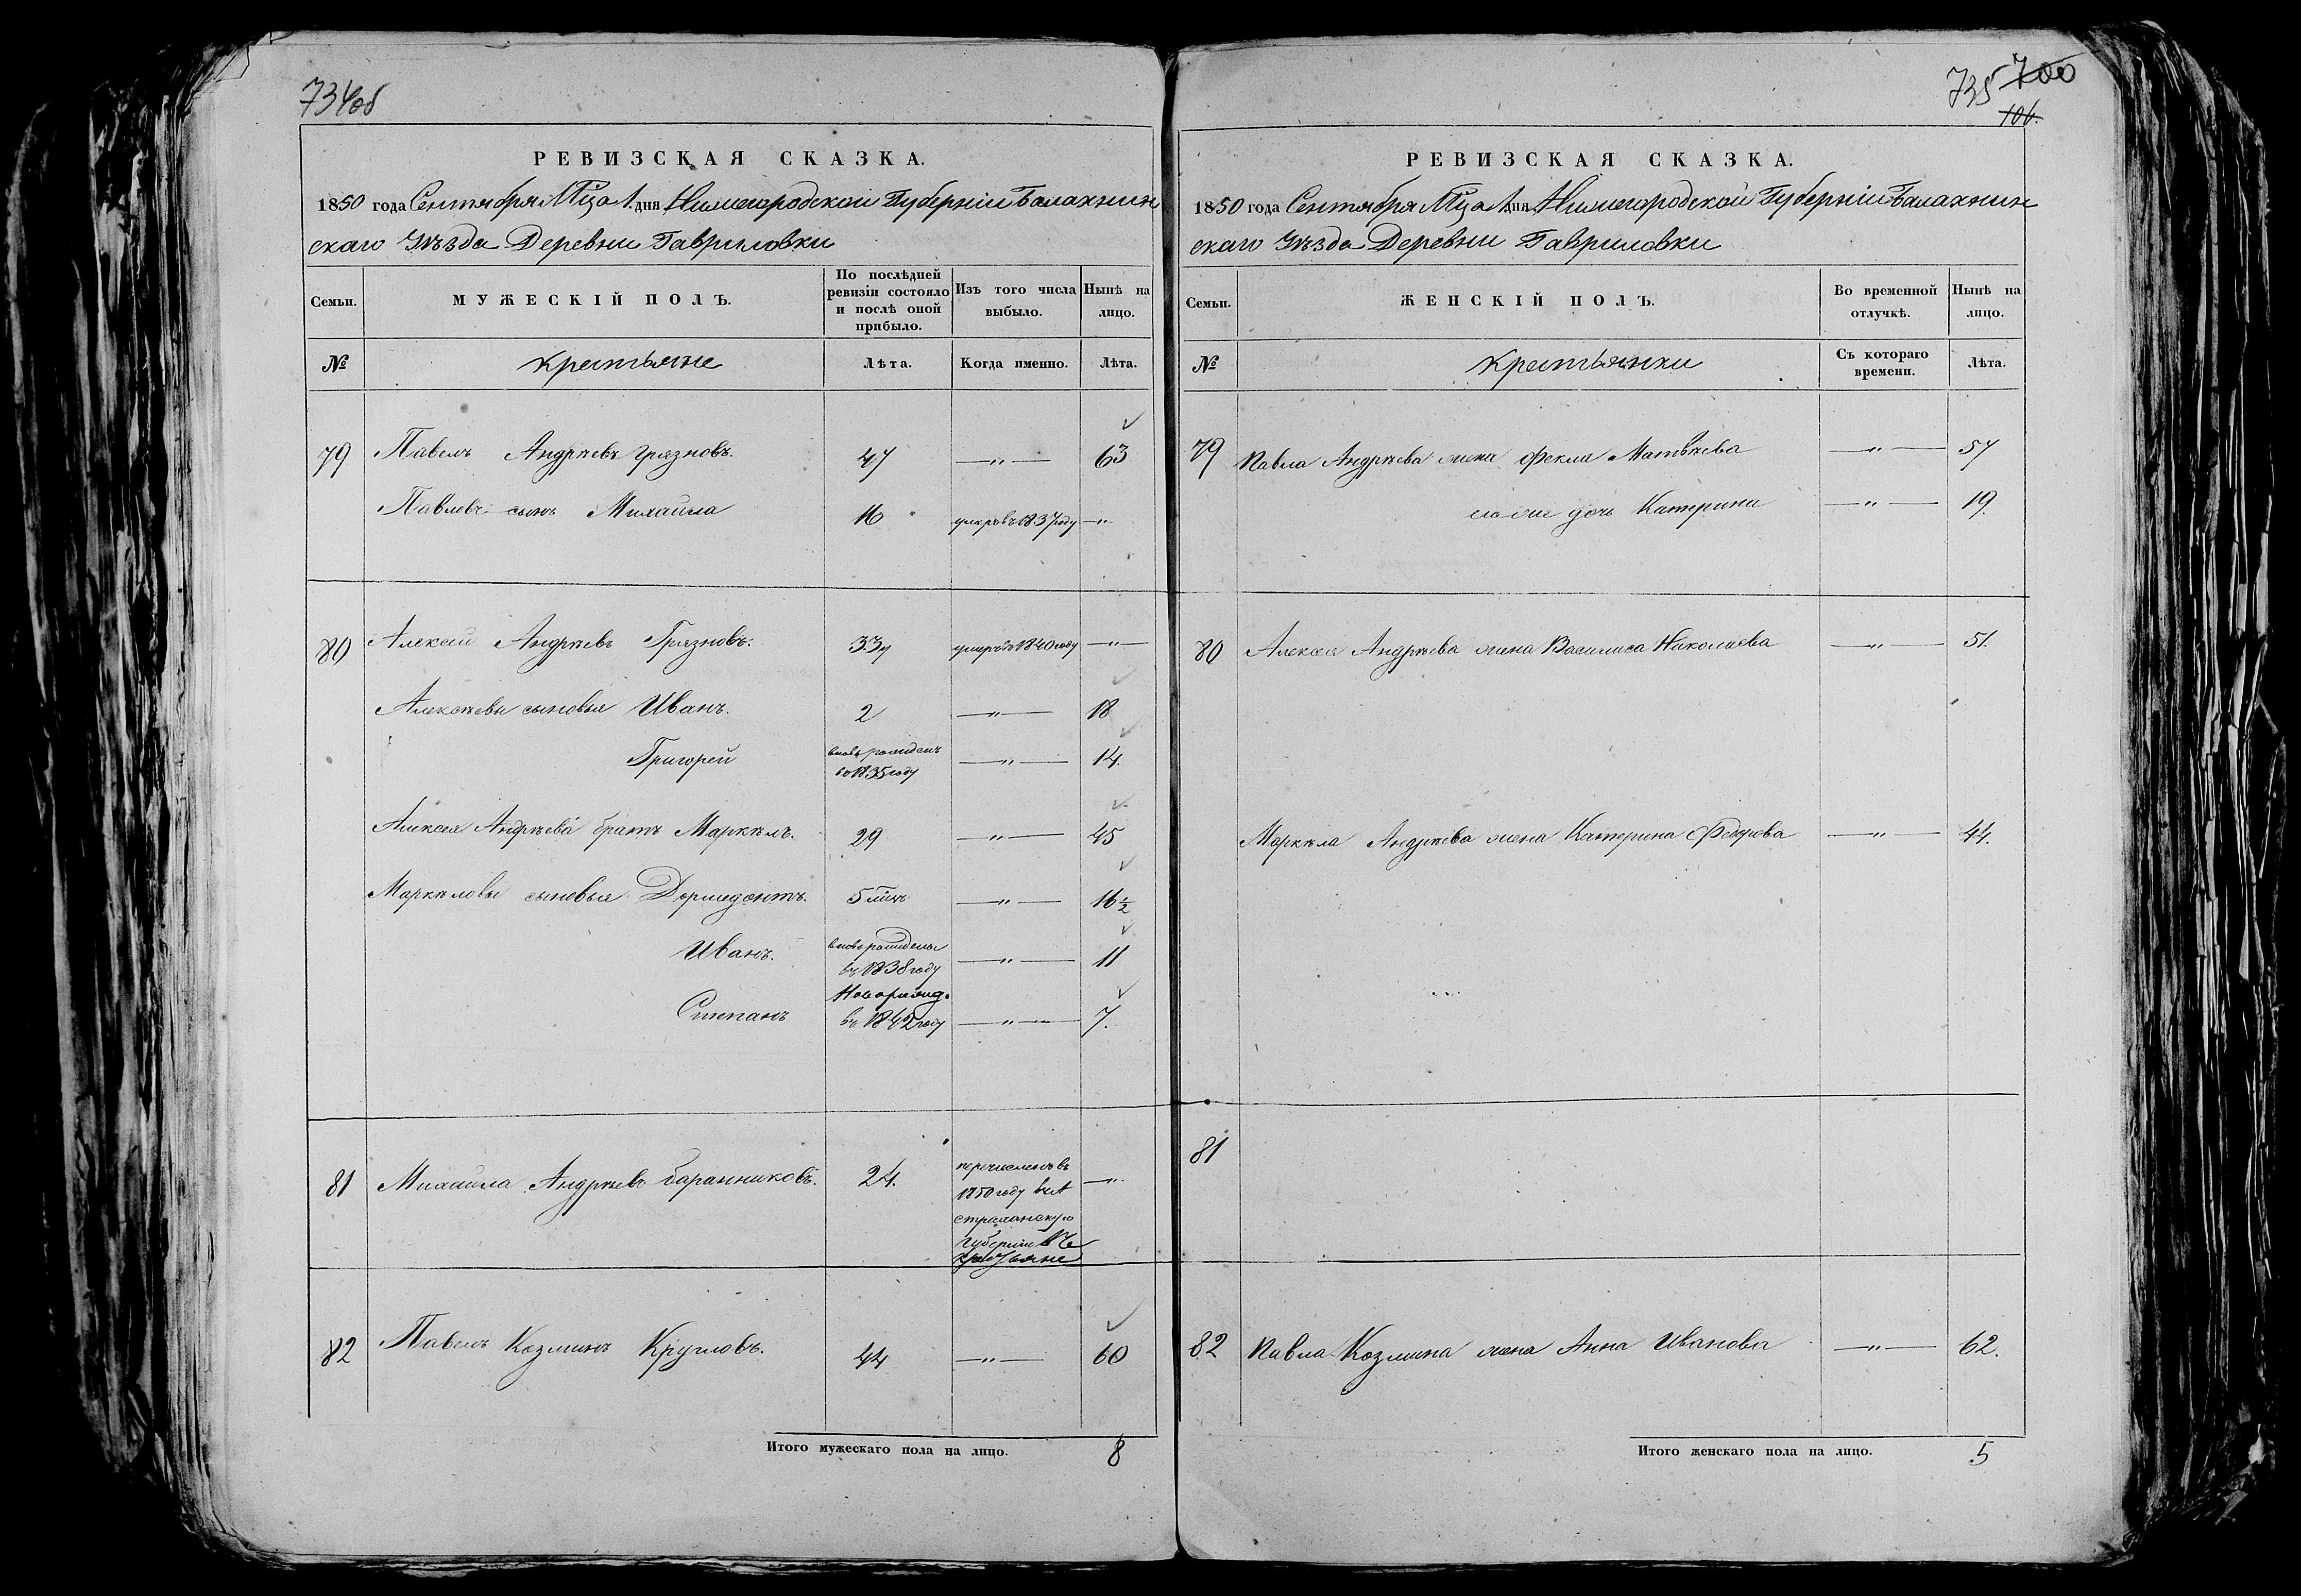 734об
РЕВИЗСКАЯ СКАЗКА.
1850 года Сентября М̃ца 1 дня Нижегородской Губерніи Балахнин
скаго Уѣзда Деревни Гавриловки
Семьи.
МУЖЕСКІЙ ПОЛЪ.
По послѣдней ревизіи состояло и послѣ оной прибыло.
Изъ того числа выбыло.
Нынѣ на лицо.
№
крестьяне
Лѣта.
Когда именно.
Лѣта.
79 Павелъ Андрѣевъ Грязновъ. 47 —"— 63
Павловъ сынъ Михайла 16 умеръ въ 1837 году —"—
80 Алексей Андрѣевъ Грязновъ. 33 умеръ въ 1840 году —"—
Алексѣевы сыновья Иванъ. 2 —"— 18
Григорей
вновь рожденъ
во 1835 году —"— 14.
Алексея Андрѣева братъ Маркѣлъ. 29 —"— 45
Маркѣловы сыновья Дормедонтъ. 5 —"— 16 ½
Иванъ.
вновь рожденъ
въ 1838 году —"— 11
Степанъ
Новорожд.
въ 1842 году —"— 7.
81 Михайла Андрѣевъ Баранниковъ. 24.
перечисленъ въ
1850 году въ А
страханскую
Губернию въ
крестьяне
—"—
82 Павелъ Козминъ Кругловъ. 44 —"— 60
Итого мужескаго пола на лицо. 8
735 700
106.
РЕВИЗСКАЯ СКАЗКА.
1850 года Сентября М̃ца 1 дня Нижегородской Губерніи Балахнин
скаго Уѣзда Деревни Гавриловки
Семьи.
ЖЕНСКІЙ ПОЛЪ.
Во временной отлучкѣ.
Нынѣ на лицо.
№
крестьянки
Съ котораго времени.
Лѣта.
79 Павла Андрѣева жена Фекла Матвѣева —"— 57
его же дочь Катерина —"— 19.
80 Алексея Андрѣева жена Василиса Николаева —"— 51.
Маркѣла Андрѣева жена Катерина Федорова —"— 44.
81
82 Павла Козмина жена Анна Иванова —"— 62.
Итого женскаго пола на лицо. 5